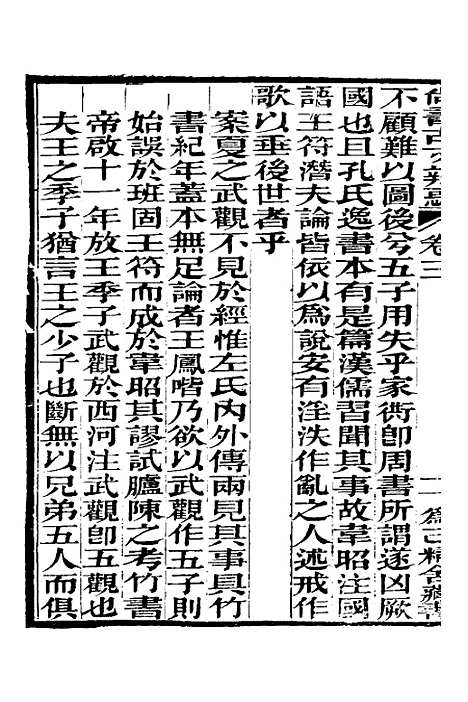 卷三
不顧難以圖後兮五子用失乎家衖卽周書所謂遂凶厥
國也且孔氏逸書本有是篇漢儒習聞其事故韋昭注國
語王符潛夫論皆依以爲說安有淫泆作亂之人述戒作
歌以垂後世者乎
案夏之武觀不見於經惟左氏內外傳兩見其事具竹
書紀年蓋本無足論者王鳳喈乃欲以武觀作五子則
始誤於班固王符而成於韋昭其謬試臚陳之考竹書
帝啟十一年放王季子武觀於西河注武觀卽五觀也
夫王之季子猶言王之少子也斷無以兄弟五人而俱